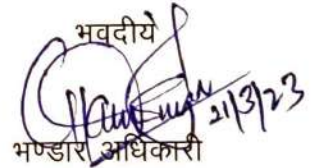 भवदीय
21/3/23
भण्डार अधिकारी